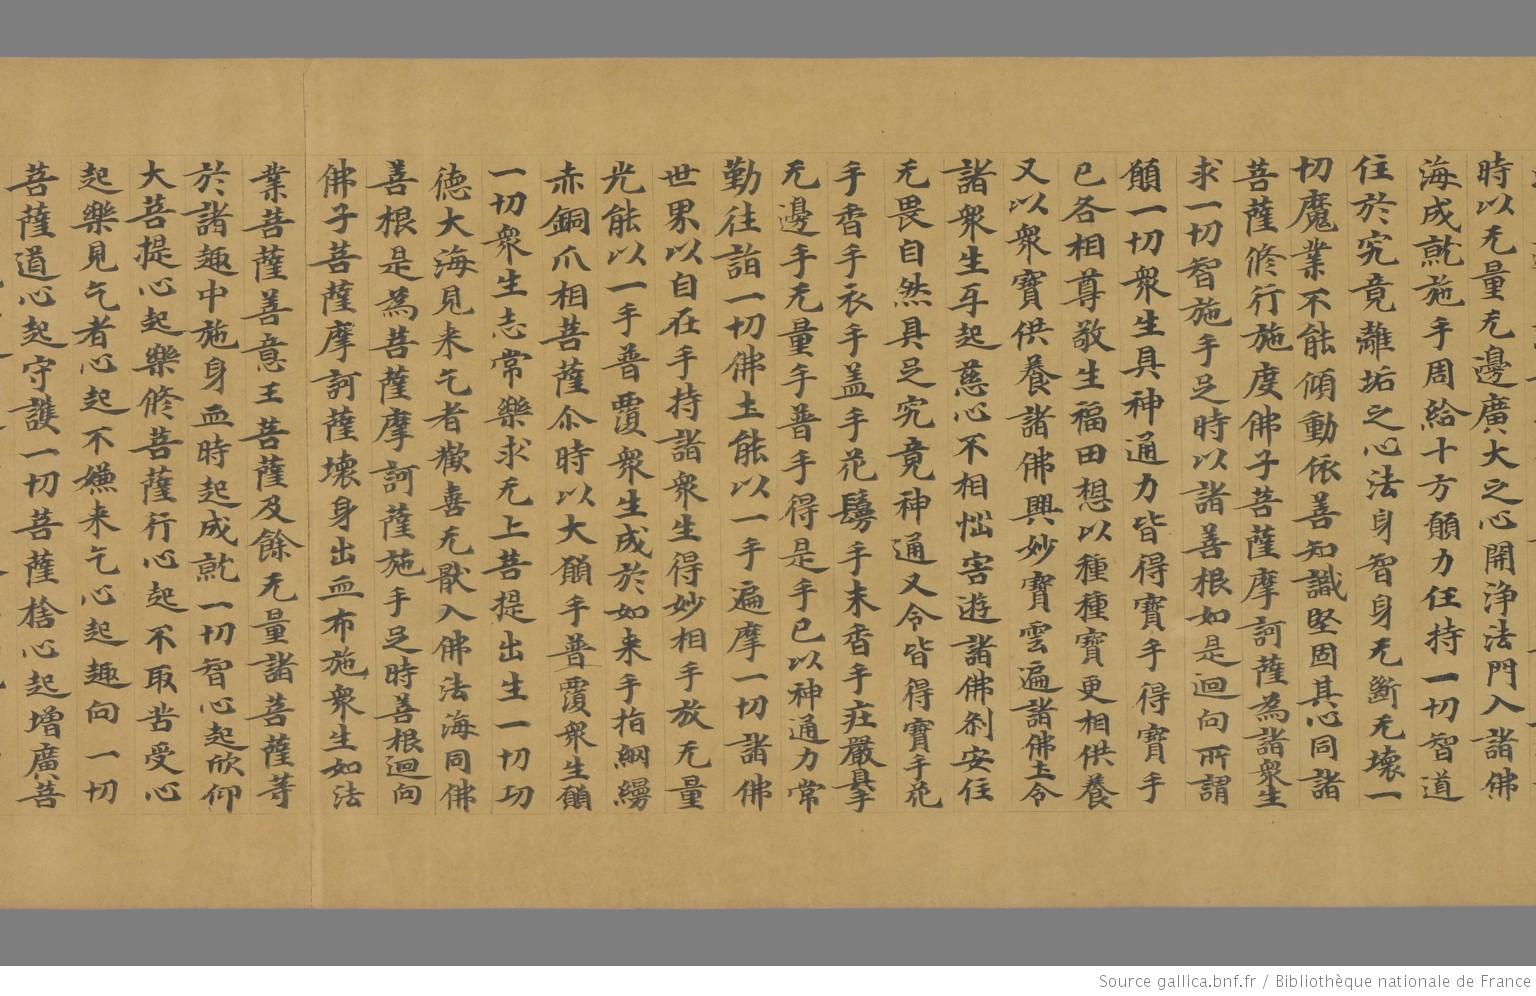 時以无量无邊廣大之心開淨法門入諸佛
海成就施手周給十方願力任持一切智道
住於究竟離垢之心法身智身无斷无壞一
切魔業不能傾動依善知識堅固其心同諸
菩薩修行施度佛子菩薩摩訶薩為諸眾生
求一切智施手足時以諸善根如是迴向所謂
願一切眾生具神通力皆得寶手得寶手
已各相尊敬生福田想以種種寶更相供養
又以眾寶供養諸佛興妙寶雲遍諸佛土令
諸眾生互起慈心不相惱害遊諸佛剎安住
无畏自然具足究竟神通又令皆得寶手花
手香手衣手盖手花鬘手末香手莊嚴具手
无邊手无量手普手得是手已以神通力常
勤往詣一切佛土能以一手遍摩一切諸佛
世界以自在手持諸眾生得妙相手放无量
光能以一手普覆眾生成於如来手指網縵
赤銅爪相菩薩尒時以大願手普覆眾生願
一切眾生志常樂求无上菩提出生一切功
德大海見来乞者歡喜无猒入佛法海同佛
善根是為菩薩摩訶薩施手足時善根迴向
佛子菩薩摩訶薩壞身出血布施眾生如法
業菩薩善意王菩薩及餘无量諸菩薩等
於諸趣中施身血時起成就一切智心起欣仰
大菩提心起樂修菩薩行心起不取苦受心
起樂見乞者心起不嫌来乞心起趣向一切
菩薩道心起守護一切菩薩捨心起增廣菩
Source gallica.bnf.fr / Bibliothèque nationale de France